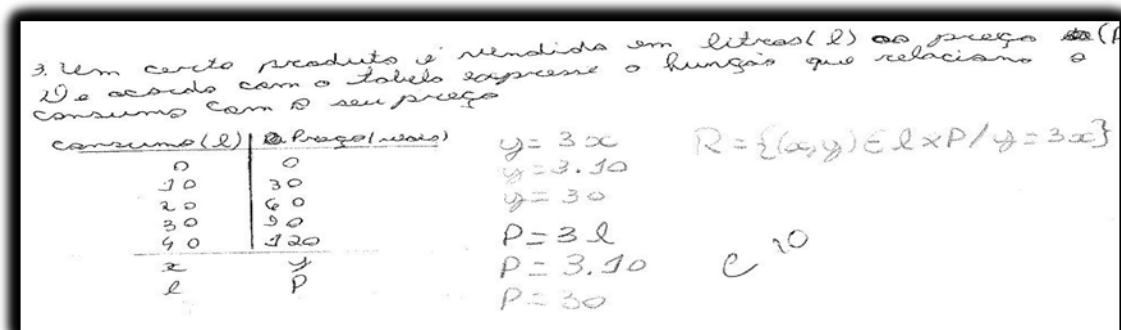 3. Um certo produto é vendido em litros(l) ao preço (P
De acordo com a tabela expresse a função que relaciona o
consumo com o seu preço
consumo(l) Preço(reais)
0 0
10 30
20 60
30 90
40 120
x y
l P
y = 3x
y = 3.10
y = 30
P = 3l
P = 3.10
P = 30
R = {(x,y) ∈ l x P / y = 3x}
C 10